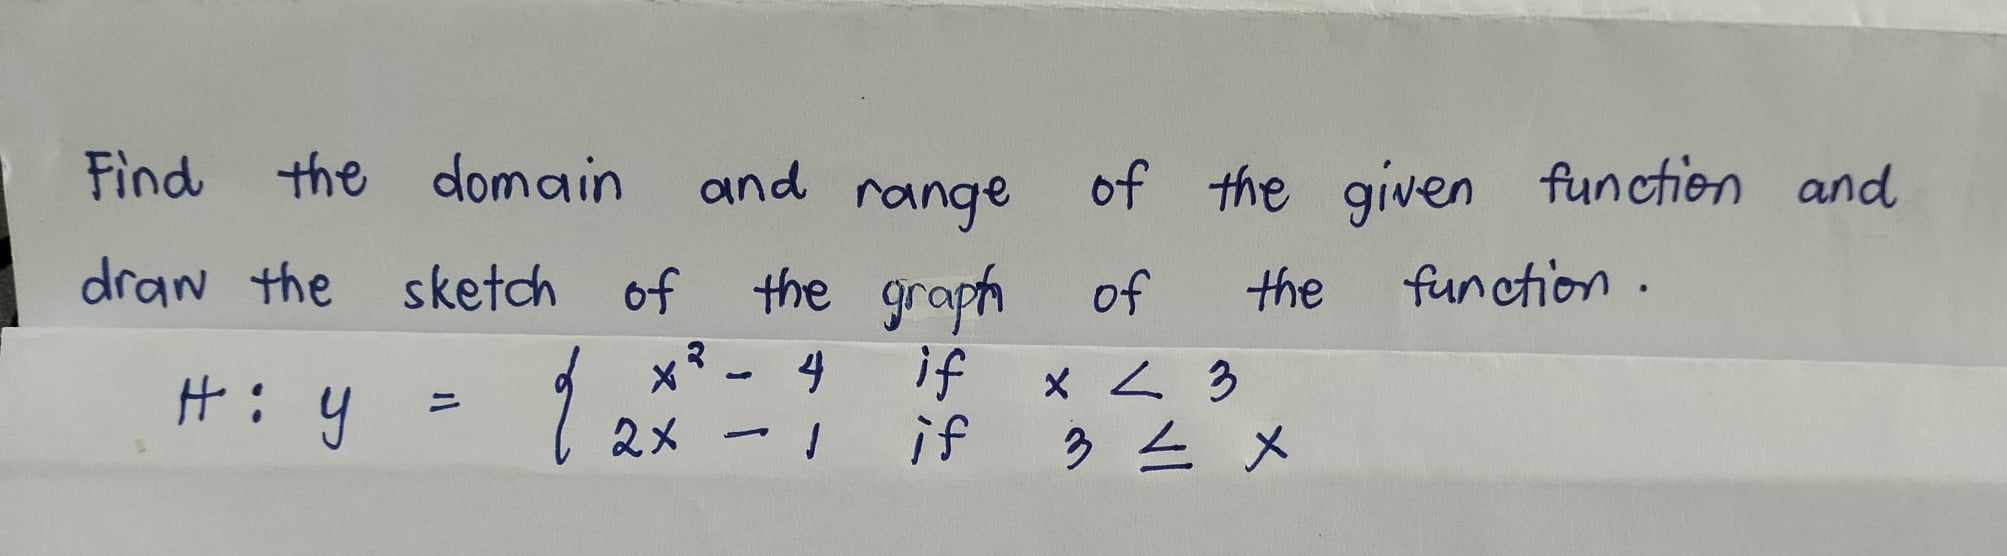 Find the domain and range of the given function and
draw the sketch of the graph of the function.
H: y = { x² - 4 if x < 3
2x - 1 if 3 ≤ x